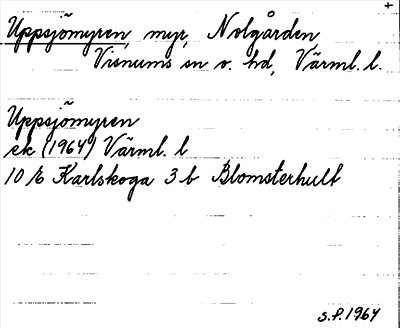 +
Uppsjömyren, myr, Nolgården
Visnums sn o. hd, Värml. l.
Uppsjömyren
ek (1964) Värml. l
10 E Karlskoga 3 b Blomsterhult
S.P. 1964